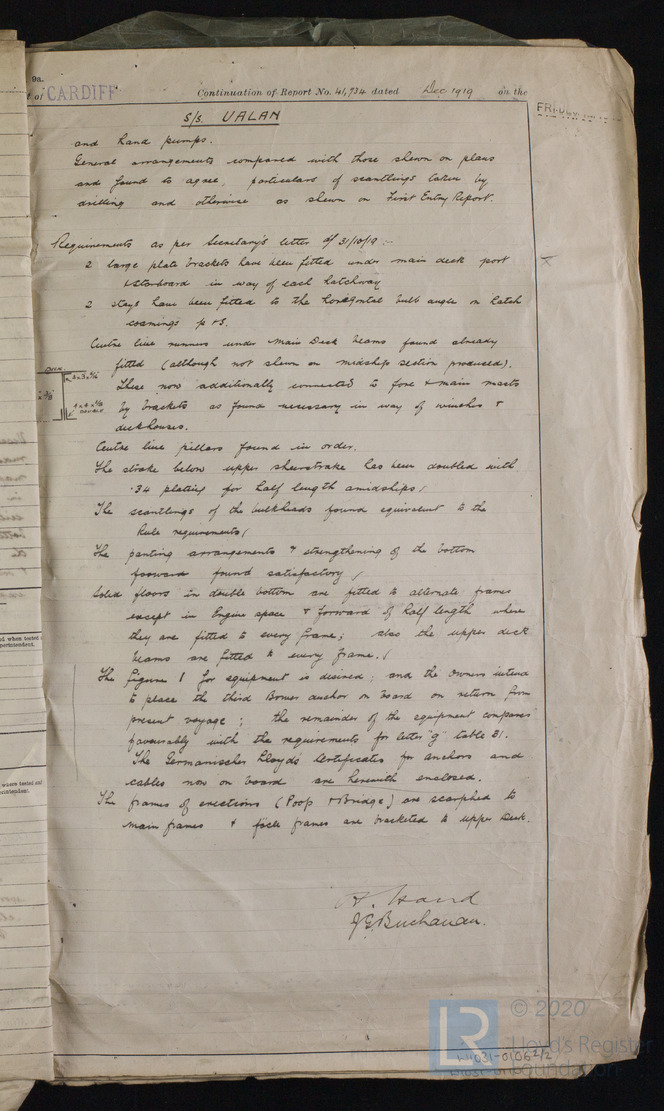 9a.
t of CARDIFF Continuation of Report No. 41,734 dated Dec 1919 on the
S/S. VALAN
and hand pumps.
General arrangements compared with those shewn on plans
and found to agree, particulars of scantlings taken by
drilling and otherwise as shewn on First Entry Report.
Requirements as per Secretary's letter of 31/10/19 :-
2 large plate brackets have been fitted under main deck port
& starboard in way of each hatchway
2 stays have been fitted to the horizontal bulb angle on hatch
coamings p & s.
Centre line runners under Main Deck beams found already
fitted (although not shewn on midship section produced).
These now additionally connected to fore & main masts
by brackets as found necessary in way of winches &
deckhouses.
Centre line pillars found in order.
The strake below upper sheerstrake has been doubled with
.34 plating for half length amidships/
The scantlings of the bulkheads found equivalent to the
Rule requirements/
The panting arrangements & strengthening of the bottom
forward found satisfactory /
Solid floors in double bottom are fitted to alternate frames
except in Engine space & forward of half length where
they are fitted to every frame; also the upper deck
beams are fitted to every frame./
The figure 1 for equipment is desired; and the Owners intend
to place the third Bower anchor on board on return from
present voyage; the remainder of the equipment compares
favourably with the requirements for letter "g" table 31.
The Germanischer Lloyds Certificates for anchors and
cables now on board are herewith enclosed.
The frames of erections (Poop & Bridge) are scarphed to
main frames & focle frames are bracketed to upper deck.
H. Hand
J G Buchanan.
LR
© 2020
Lloyd's Register
Foundation
W1031-0106 2/2